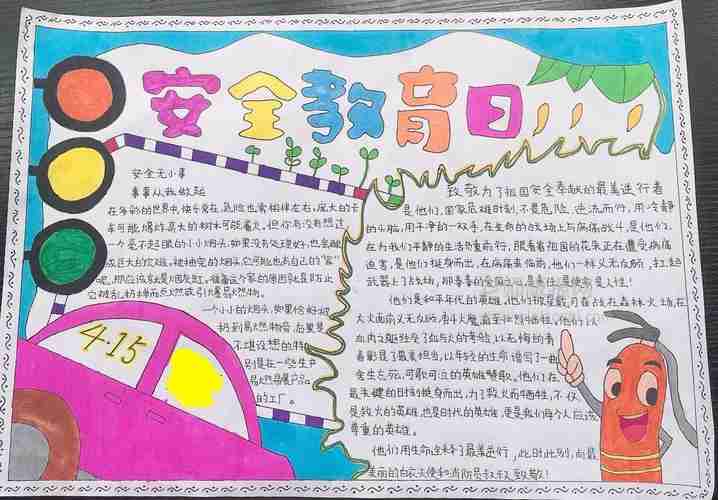 安全教育日
安全无小事
事事从我做起
在多彩的世界中,快乐常在,危险也常相伴左右,庞大的卡
车可能爆炸,高大的树木可能着火。但你有没有想过,
一个毫不起眼的小小烟头,如果没有处理好,也会酿
成巨大的灾难。被抽完的烟头,它可能也有自己的"家"
呢,那应该就是烟灰缸。
它被乱扔掉而点燃或引爆易燃物。
一个小小的烟头,如果恰好被
扔到易燃物旁,后果是
不堪设想的,特
别是在一些生产
易燃易爆产品
的工厂。
4.15
致敬为了祖国安全奉献的最美逆行者
是他们,国家危难时刻,不畏危险,逆流而行,用冷静
的头脑,用干净的一双手,在生命的战场上与病痛战斗,是他们,
在为我们平静的生活负重前行,眼看着祖国的花朵正在遭受病痛
迫害,是他们挺身而出,在病痛来临前,他们一样义无反顾,扛起
武器上了战场,
他们是和平年代的英雄,他们被
火灾面前义无反顾,
血肉之躯经受了血与火的考验,以无悔的青
春彰显了最美担当,以年轻的生命谱写了一曲
舍生忘死,可歌可泣的英雄赞歌。他们在
最关键的时刻挺身而出,为了救火而牺牲,不仅
是救火的英雄,也是时代的英雄,更是我们每个人应该
尊重的英雄。
他们用生命诠释了最美逆行,此时此刻,向最
美丽的白衣天使和消防员叔叔致敬!